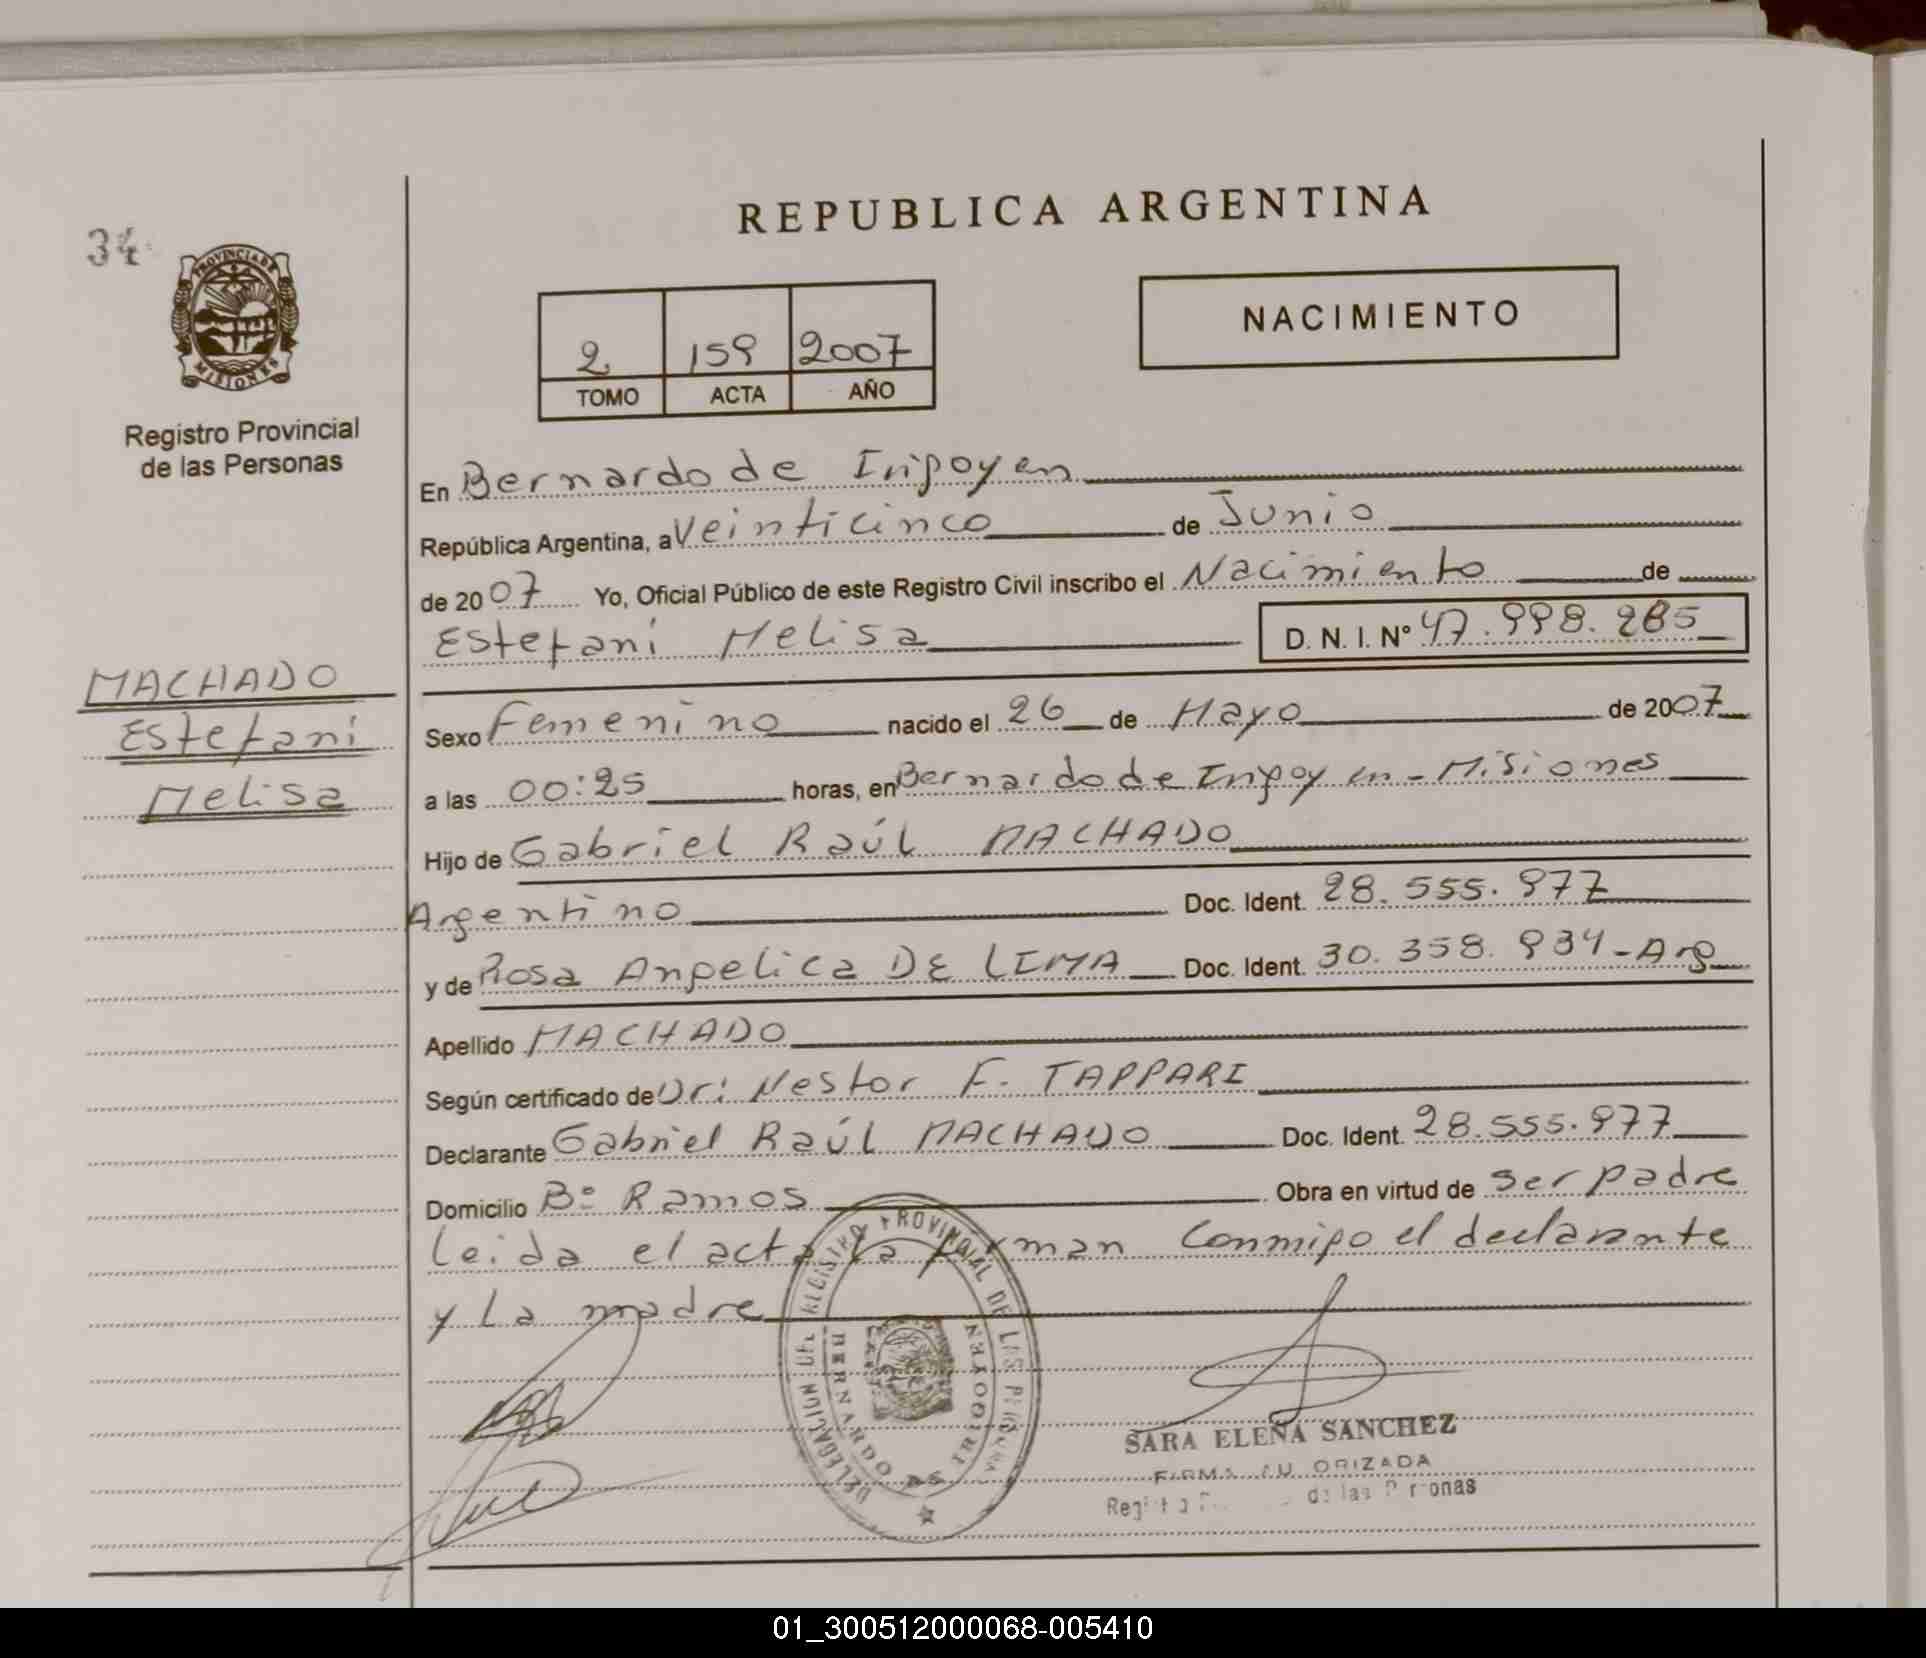 REPUBLICA ARGENTINA
34
PROVINCIA DE
MISIONES
Registro Provincial
de las Personas
NACIMIENTO
2 159 2007
TOMO ACTA AÑO
En Bernardo de Irigoyen
República Argentina, a Veinticinco de Junio
de 2007 Yo, Oficial Público de este Registro Civil inscribo el Nacimiento de
Estefaní Melisa D. N. I. Nº 47.998.285
MACHADO
Estefaní
Melisa
Sexo Femenino nacido el 26 de Mayo de 2007
a las 00:25 horas, en Bernardo de Irigoyen - Misiones
Hijo de Gabriel Raúl MACHADO
Argentino Doc. Ident. 28.555.977
y de Rosa Angelica DE LIMA Doc. Ident. 30.358.934 - Arg
Apellido MACHADO
Según certificado de Dr: Nestor F. TAPPARI
Declarante Gabriel Raúl MACHADO Doc. Ident. 28.555.977
Domicilio Bº Ramos Obra en virtud de ser padre
Leida el acta la firman Conmigo el declarante
y La madre
DELEGACION DEL REGISTRO PROVINCIAL DE LAS PERSONAS
BERNARDO DE IRIGOYEN
SARA ELENA SANCHEZ
FIRMA AUTORIZADA
de las Personas
01_300512000068-005410